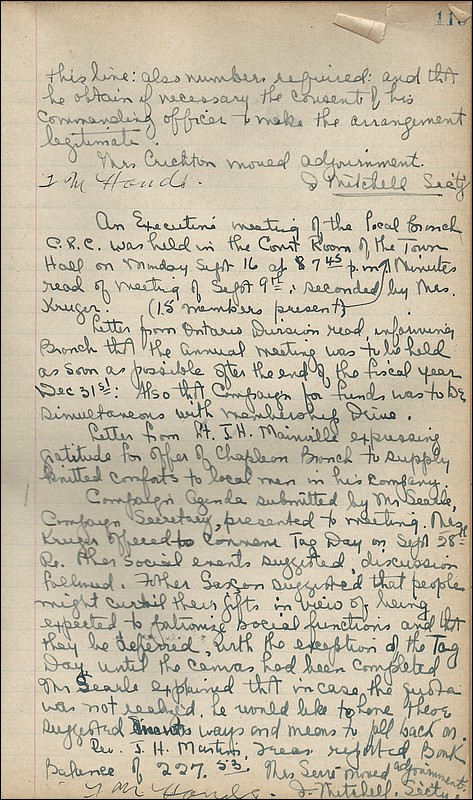 11
this line: also numbers required: and that
he obtain if necessary the consent of his
Commanding officer to make the arrangement
legitimate.
Mrs Crichton moved adjournment.
T M Hands. J Mitchell Secty
An Executive meeting of the Local Branch
C.R.C. was held in the Court Room of the Town
Hall on Monday Sept 16 at 7 45 p.m. Minutes
read of meeting of Sept 9th, seconded by Mrs.
Kruger. (15 members present)
Letter from Ontario Division read, informing
Branch that the annual meeting was to be held
as soon as possible after the end of the fiscal year
Dec 31st: Also that Campaign for funds was to be
simultaneous with membership Drive.
Letter from Pt. J.H. Mainville expressing
gratitude for offer of Chapleau Branch to supply
knitted comforts to local men in his company.
Campaign Agenda submitted by Mr Searle,
Campaign Secretary, presented to meeting. Mrs
Kruger offered to convene Tag Day on Sept 28th
Re. other social events suggested, discussion
followed. Father Saxon suggested that people
might curtail their gifts in view of being
expected to patronize social functions and that
they be deferred, with the exception of the Tag
Day, until the canvas had been completed
Mr Searle explained that in case the quota
was not realized, he would like to have these
suggested ways and means to fall back on.
Rev. J. H. Martin, Treas. reported Bank
Balance of 227.53. Mrs moved adjournment.
T M Hands. J. Mitchell. Secty